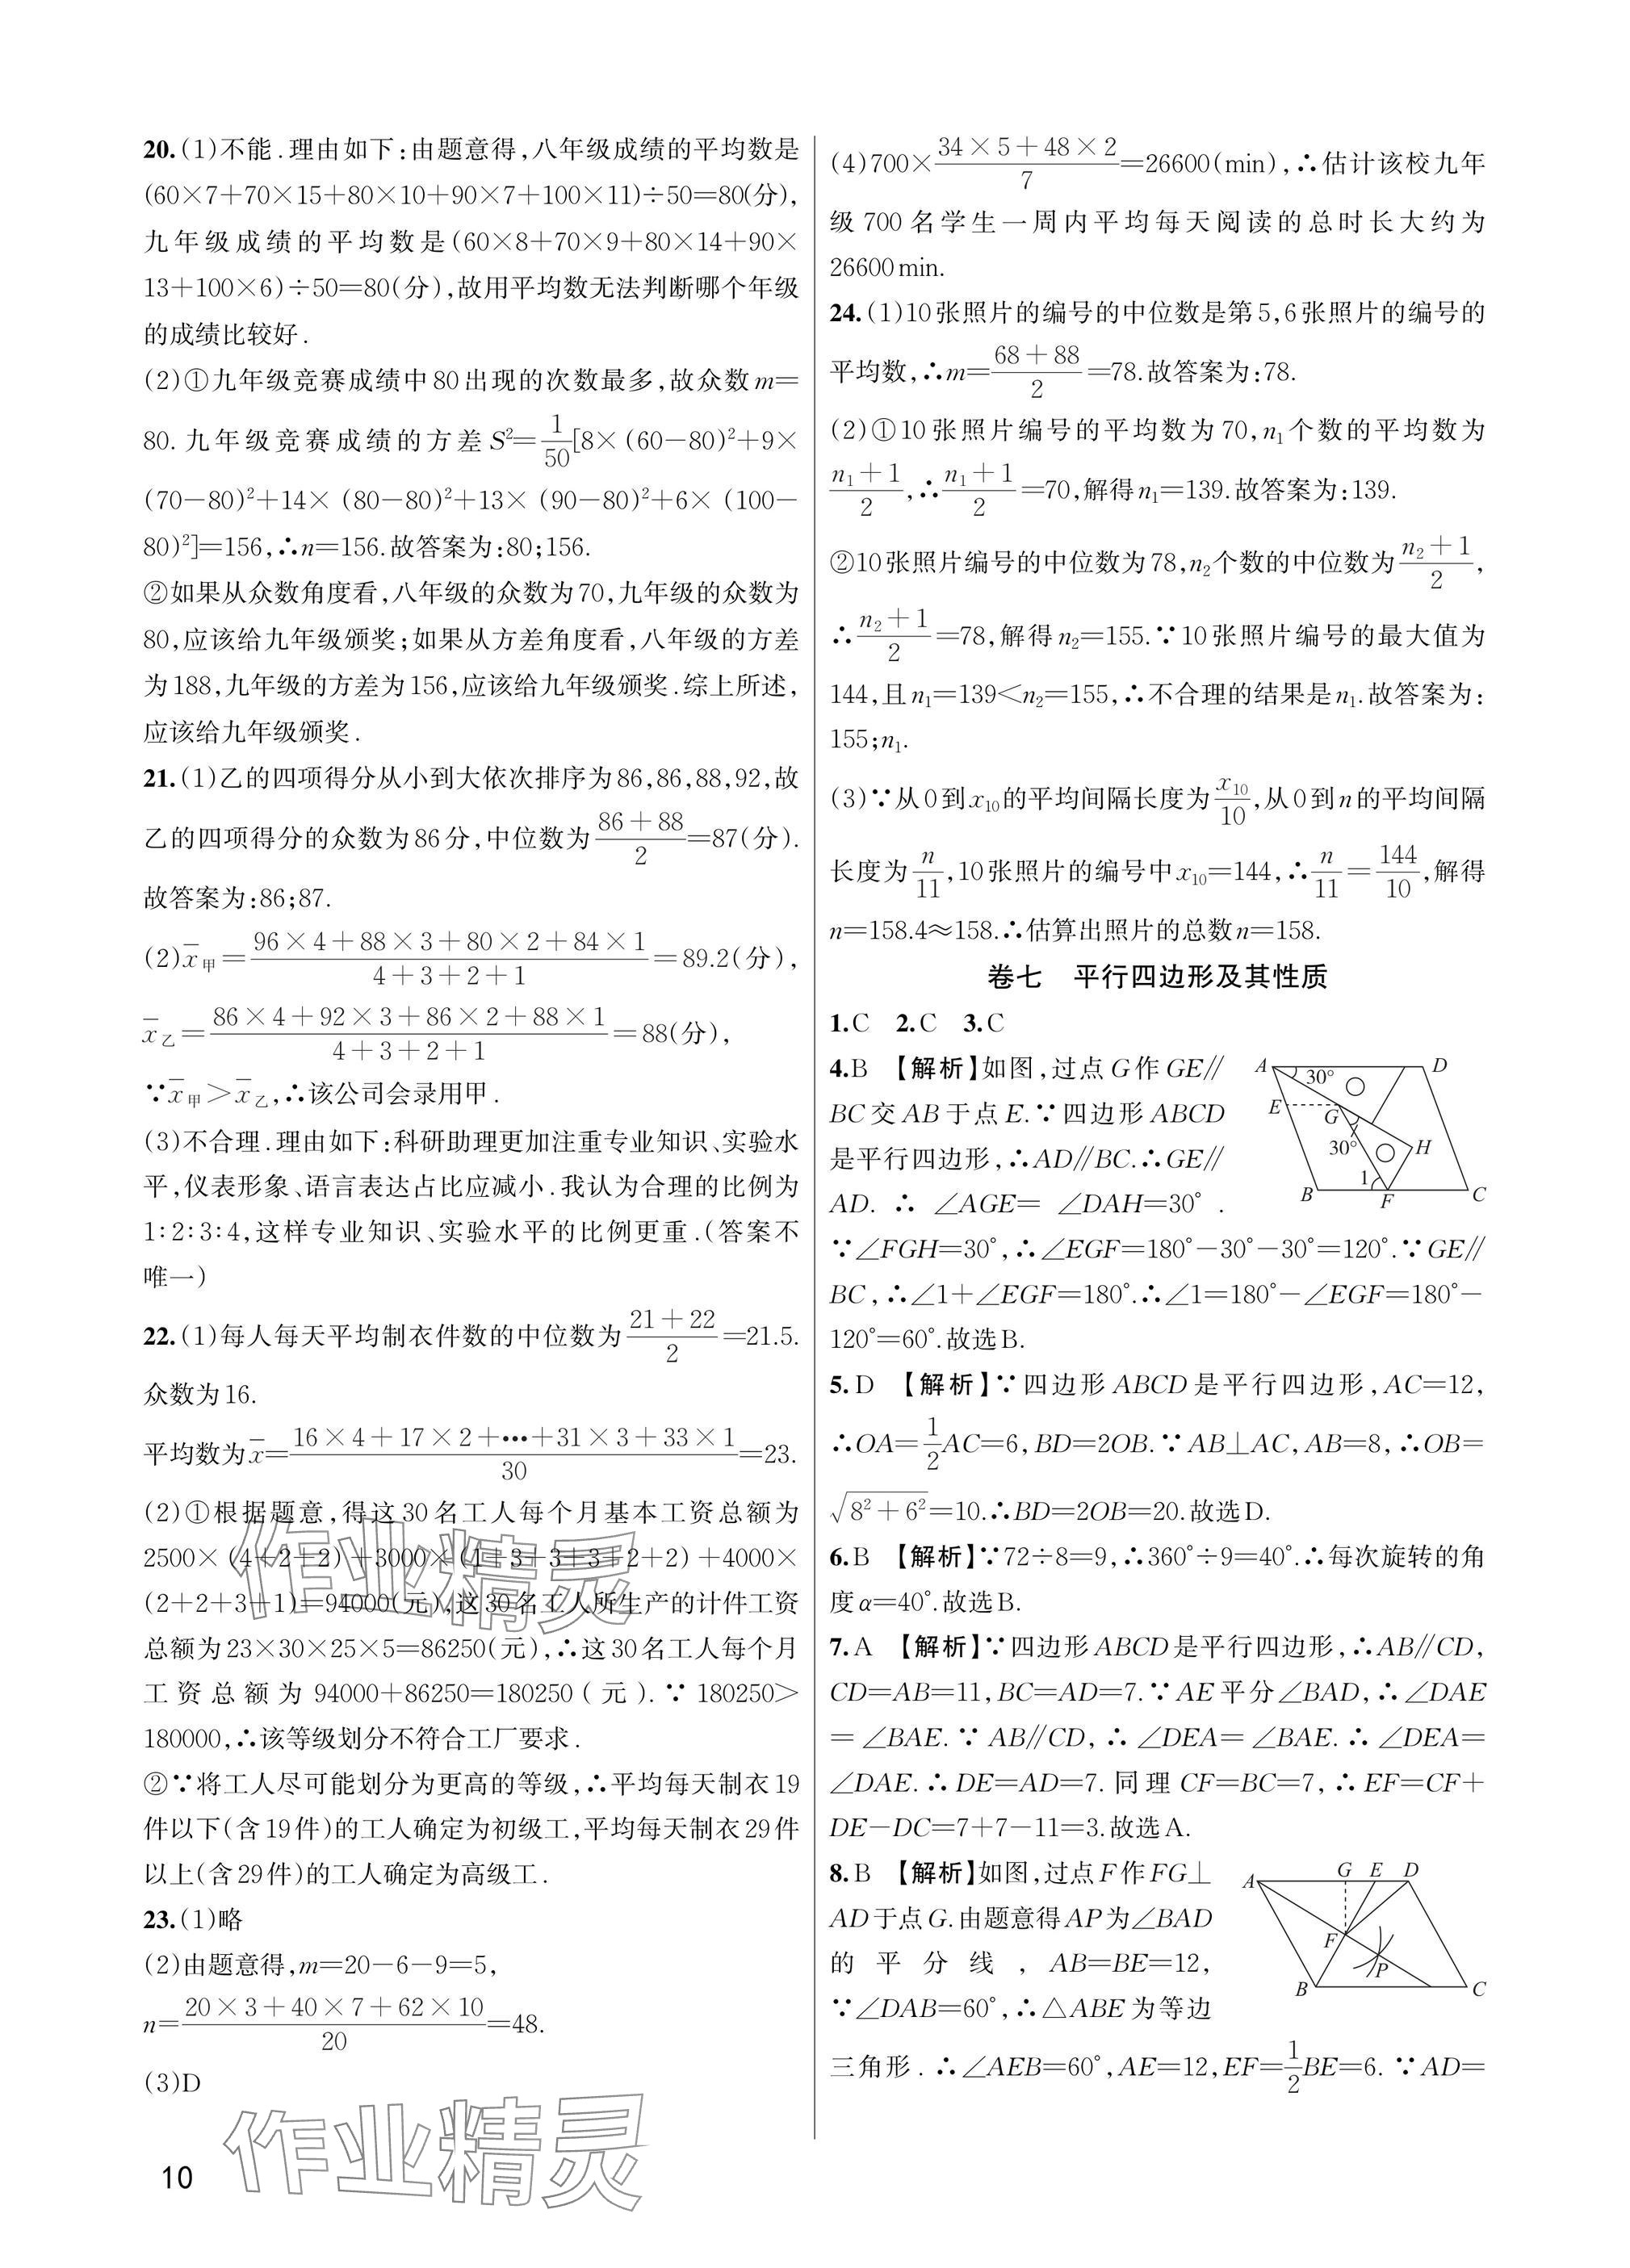 20.(1)不能.理由如下:由题意得,八年级成绩的平均数是
(60×7+70×15+80×10+90×7+100×11)÷50=80(分),
九年级成绩的平均数是(60×8+70×9+80×14+90×
13+100×6)÷50=80(分),故用平均数无法判断哪个年级
的成绩比较好.
(2)①九年级竞赛成绩中80出现的次数最多,故众数m=
80.九年级竞赛成绩的方差S²=1/50[8×(60-80)²+9×
(70-80)²+14×(80-80)²+13×(90-80)²+6×(100-
80)²]=156,∴n=156.故答案为:80;156.
②如果从众数角度看,八年级的众数为70,九年级的众数为
80,应该给九年级颁奖;如果从方差角度看,八年级的方差
为188,九年级的方差为156,应该给九年级颁奖.综上所述,
应该给九年级颁奖.
21.(1)乙的四项得分从小到大依次排序为86,86,88,92,故
乙的四项得分的众数为86分,中位数为(86+88)/2=87(分).
故答案为:86;87.
(2)x̄甲=(96×4+88×3+80×2+84×1)/(4+3+2+1)=89.2(分),
x̄乙=(86×4+92×3+86×2+88×1)/(4+3+2+1)=88(分),
∵x̄甲>x̄乙,∴该公司会录用甲.
(3)不合理.理由如下:科研助理更加注重专业知识、实验水
平,仪表形象、语言表达占比应减小.我认为合理的比例为
1∶2∶3∶4,这样专业知识、实验水平的比例更重.(答案不
唯一)
22.(1)每人每天平均制衣件数的中位数为(21+22)/2=21.5.
众数为16.
平均数为x̄=(16×4+17×2+…+31×3+33×1)/30=23.
(2)①根据题意,得这30名工人每个月基本工资总额为
2500×(4+2+2)+3000×(1+3+3+3+2+2)+4000×
(2+2+3+1)=94000(元),这30名工人所生产的计件工资
总额为23×30×25×5=86250(元),∴这30名工人每个月
工资总额为94000+86250=180250(元).∵180250>
180000,∴该等级划分不符合工厂要求.
②∵将工人尽可能划分为更高的等级,∴平均每天制衣19
件以下(含19件)的工人确定为初级工,平均每天制衣29件
以上(含29件)的工人确定为高级工.
23.(1)略
(2)由题意得,m=20-6-9=5,
n=(20×3+40×7+62×10)/20=48.
(3)D
(4)700×(34×5+48×2)/7=26600(min),∴估计该校九年
级700名学生一周内平均每天阅读的总时长大约为
26600min.
24.(1)10张照片的编号的中位数是第5,6张照片的编号的
平均数,∴m=(68+88)/2=78.故答案为:78.
(2)①10张照片编号的平均数为70,n₁个数的平均数为
(n₁+1)/2,∴(n₁+1)/2=70,解得n₁=139.故答案为:139.
②10张照片编号的中位数为78,n₂个数的中位数为(n₂+1)/2,
∴(n₂+1)/2=78,解得n₂=155.∵10张照片编号的最大值为
144,且n₁=139<n₂=155,∴不合理的结果是n₁.故答案为:
155;n₁.
(3)∵从0到x₁₀的平均间隔长度为x₁₀/10,从0到n的平均间隔
长度为n/11,10张照片的编号中x₁₀=144,∴n/11=144/10,解得
n=158.4≈158.∴估算出照片的总数n=158.
卷七 平行四边形及其性质
1.C 2.C 3.C
4.B 【解析】如图,过点G作GE∥
BC交AB于点E.∵四边形ABCD
是平行四边形,∴AD∥BC.∴GE∥
AD.∴∠AGE=∠DAH=30°.
A D 30° E G 30° H 1 B F C
∵∠FGH=30°,∴∠EGF=180°-30°-30°=120°.∵GE∥
BC,∴∠1+∠EGF=180°.∴∠1=180°-∠EGF=180°-
120°=60°.故选B.
5.D 【解析】∵四边形ABCD是平行四边形,AC=12,
∴OA=1/2AC=6,BD=2OB.∵AB⊥AC,AB=8,∴OB=
√(8²+6²)=10.∴BD=2OB=20.故选D.
6.B 【解析】∵72÷8=9,∴360°÷9=40°.∴每次旋转的角
度α=40°.故选B.
7.A 【解析】∵四边形ABCD是平行四边形,∴AB∥CD,
CD=AB=11,BC=AD=7.∵AE平分∠BAD,∴∠DAE
=∠BAE.∵AB∥CD,∴∠DEA=∠BAE.∴∠DEA=
∠DAE.∴DE=AD=7.同理CF=BC=7,∴EF=CF+
DE-DC=7+7-11=3.故选A.
8.B 【解析】如图,过点F作FG⊥
AD于点G.由题意得AP为∠BAD
的平分线,AB=BE=12,
∵∠DAB=60°,∴△ABE为等边
A G E D F P B C
三角形.∴∠AEB=60°,AE=12,EF=1/2BE=6.∵AD=
作业精灵
作业精灵
10